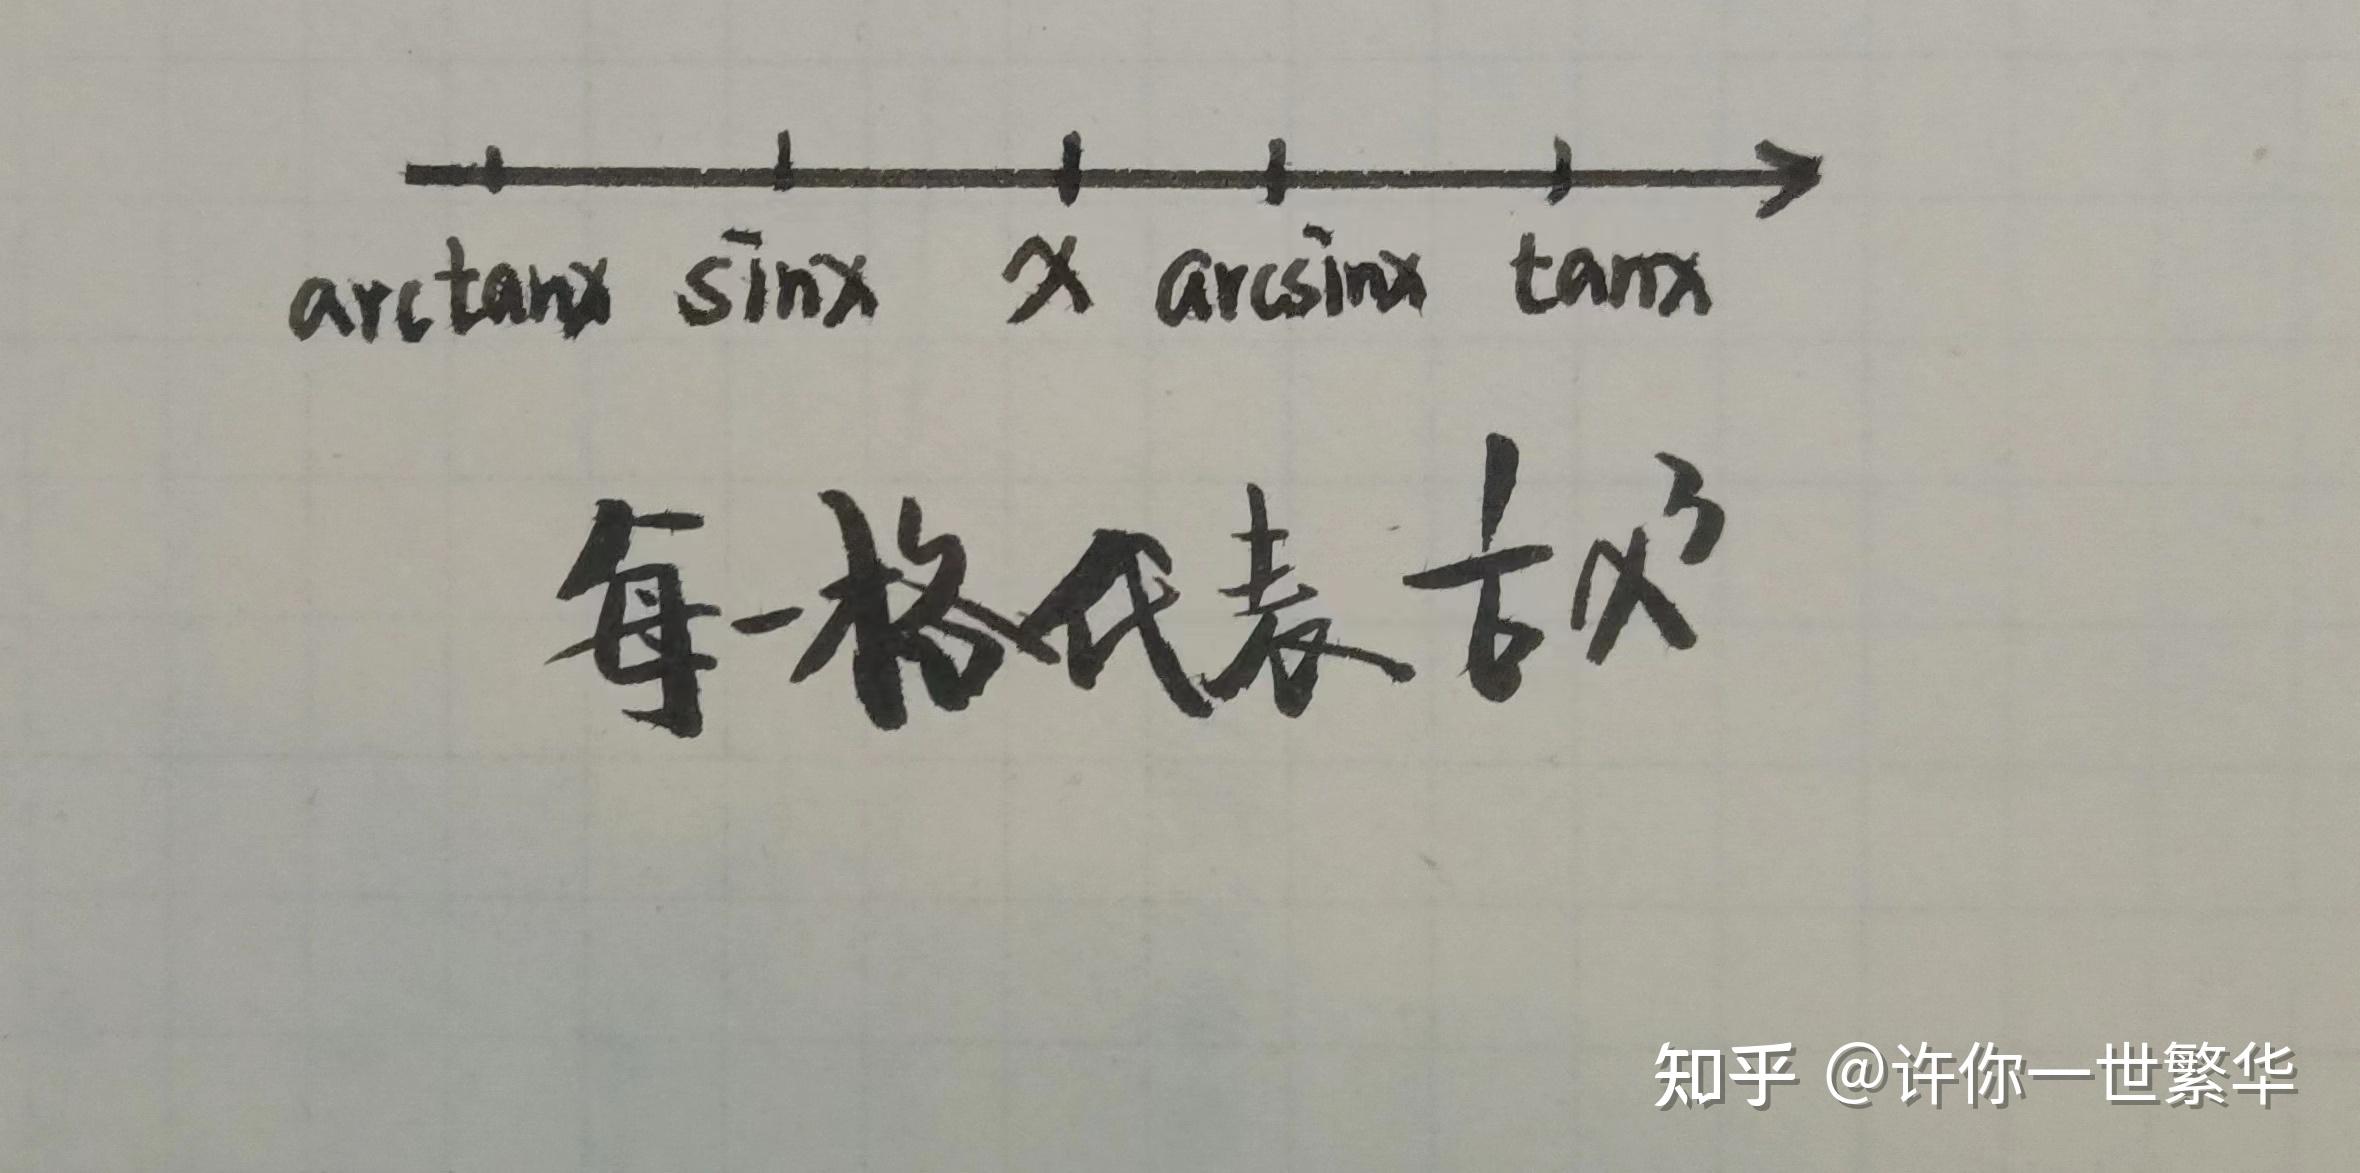 arctanx sinx x arcsinx tanx
每一格代表 1/6 x³
知乎 @许你一世繁华